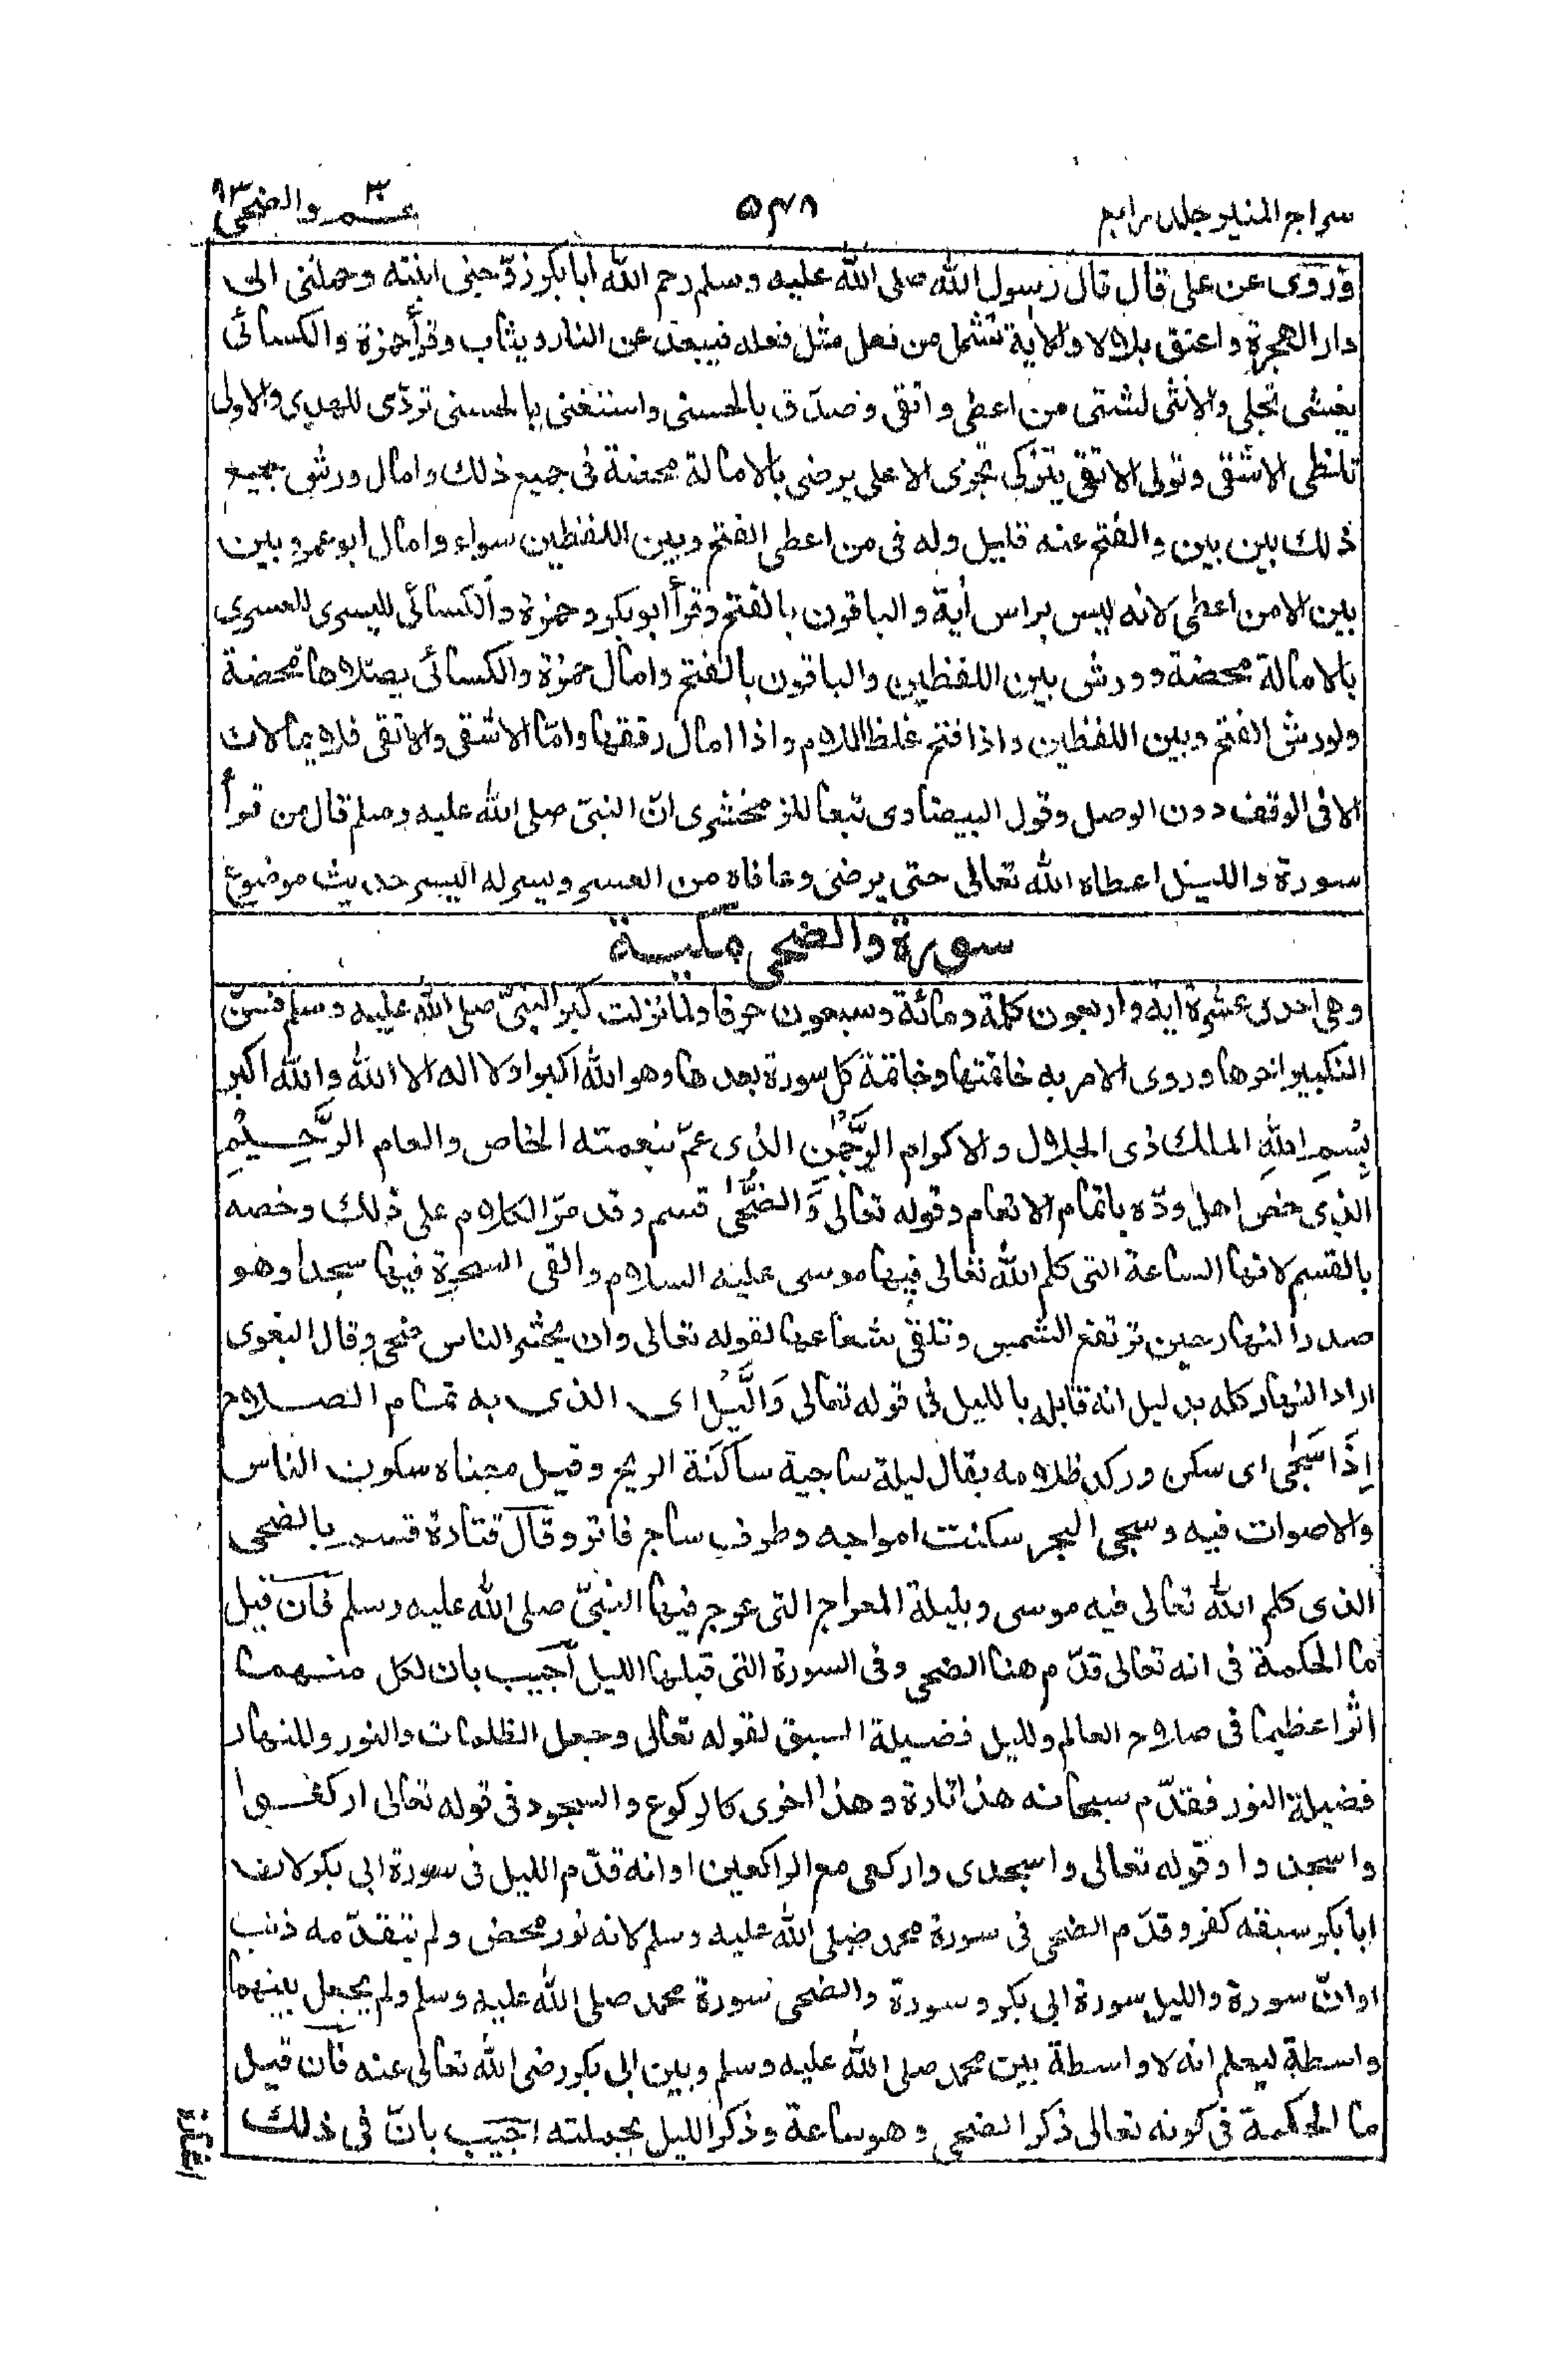 سراج المنير جلد رابع
٥٤٨
عم ٣٠ والضحى ٩٣
وروى عن على قال قال رسول الله صلى الله عليه وسلم رحم الله ابا بكر زوّجنى ابنته وحملنى الى
دار الهجرة واعتق بلالا والاية تشمل من فعل مثل فعله فيبعد عن النار ويثاب وقرأ حمزة والكسائى
يغشى تجلى والانثى لشتى من اعطى واتقى وصدق بالحسنى واستغنى بالحسنى تردّى للهدى والاولى
تلظى الاشقى وتولى الاتقى يتزكى تجزى الاعلى يرضى بالامالة محضة فى جميع ذلك وامال ورش جميع
ذلك بين بين والفتح عنه قليل وله فى من اعطى الفتح وبين اللفظين سواء وامال ابو عمرو بين
بين الا من اعطى لانه ليس براس اية والباقون بالفتح وقرأ ابو بكر وحمزة والكسائى لليسرى للعسرى
بالامالة محضة وورش بين اللفظين والباقون بالفتح وامال حمزة والكسائى يصلاها محضة
ولورش الفتح وبين اللفظين واذا فتح غلظ اللام واذا امال رققها وامّا الاشقى والاتقى فلا يمالان
الا فى الوقف دون الوصل وقول البيضاوى تبعا للزمخشرى انّ النبىّ صلى الله عليه وسلم قال من قرأ
سورة والليل اعطاه الله تعالى حتى يرضى وعافاه من العسر ويسر له اليسر حديث موضوع
سورة والضحى مكيّة
وهى احدى عشرة اية واربعون كلمة ومائة وسبعون حرفا ولما نزلت كبر النبىّ صلى الله عليه وسلم فسنّ
التكبير اخرها وروى الامر به خاتمتها وخاتمة كل سورة بعدها وهو الله اكبر او لا اله الا الله والله اكبر
بِسْمِ اللهِ الملك ذى الجلال والاكرام الرَّحْمٰنِ الذى عمّ بنعمته الخاص والعام الرَّحِيْمِ
الذى خص اهل ودّه باتمام الانعام وقوله تعالى وَالضُّحٰى قسم وقد مرّ الكلام على ذلك وخصه
بالقسم لانها الساعة التى كلم الله تعالى فيها موسى عليه السلام والقى السحرة فيها سجدا وهو
صدر النهار حين ترتفع الشمس وتلقى شعاعها لقوله تعالى وان يحشر الناس ضحى وقال البغوى
اراد النهار كله بدليل انه قابله بالليل فى قوله تعالى وَالَّيْلِ اى الذى به تمام الصلاح
اِذَا سَجٰى اى سكن وركد ظلامه يقال ليلة ساجية ساكنة الريح وقيل معناه سكون الناس
والاصوات فيه وسجى البحر سكنت امواجه وطرف ساج فاتر وقال قتادة قسم بالضحى
الذى كلم الله تعالى فيه موسى وبليلة المعراج التى عرج فيها النبىّ صلى الله عليه وسلم فان قيل
ما الحكمة فى انه تعالى قدّم هنا الضحى وفى السورة التى قبلها الليل اجيب بان لكل منهما
اثرا عظيما فى صلاح العالم ولليل فضيلة السبق لقوله تعالى وجعل الظلمات والنور وللنهار
فضيلة النور فقدّم سبحانه هذا تارة وهذا اخرى كالركوع والسجود فى قوله تعالى اركعوا
واسجدوا وقوله تعالى واسجدى واركعى مع الراكعين او انه قدّم الليل فى سورة ابى بكر لان
ابا بكر سبقه كفر وقدّم الضحى فى سورة محمد صلى الله عليه وسلم لانه نور محض ولم يتقدّمه ذنب
او انّ سورة والليل سورة ابى بكر وسورة والضحى سورة محمد صلى الله عليه وسلم ولم يجعل بينهما
واسطة ليعلم انه لا واسطة بين محمد صلى الله عليه وسلم وبين ابى بكر رضى الله تعالى عنه فان قيل
ما الحكمة فى كونه تعالى ذكر الضحى وهو ساعة وذكر الليل بجملته اجيب بانّ فى ذلك